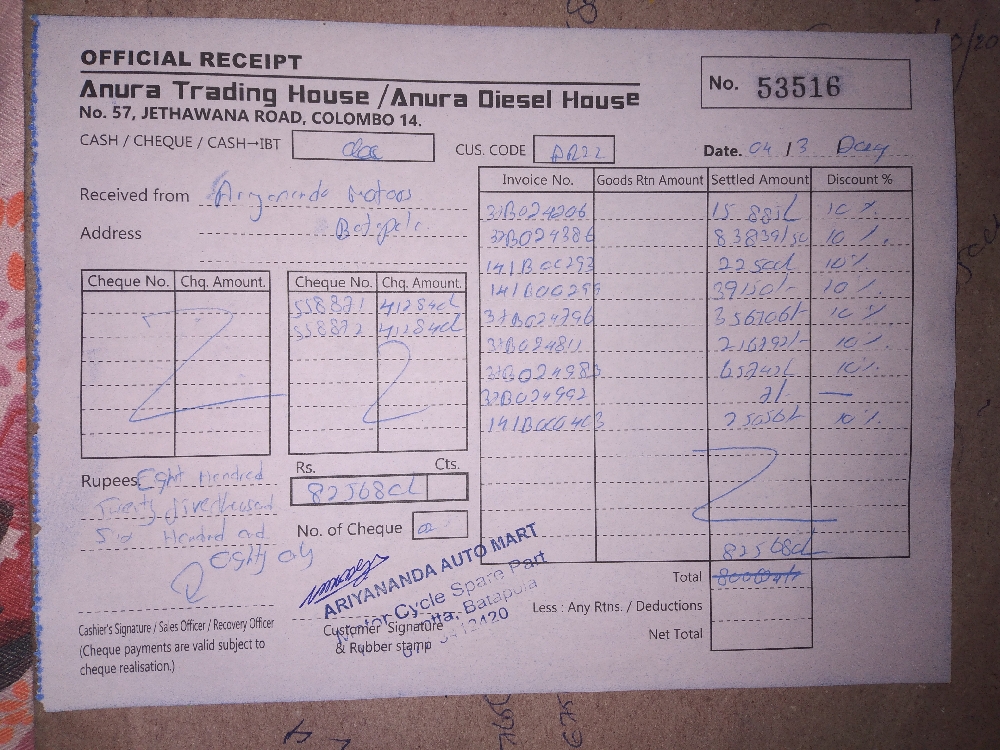 OFFICIAL RECEIPT
Anura Trading House / Anura Diesel House
No. 57, JETHAWANA ROAD, COLOMBO 14.
No. 53516
CASH / CHEQUE / CASH→IBT
CUS. CODE AR22
Date. 04 / 3
Received from Ariyananda Motors
Address Batapola
Invoice No. Goods Rtn Amount Settled Amount Discount %
37B024206 10 %
37B024386 83839/50 10 %.
141B00293 2250/- 10 %
141B00299 39150/- 10 %
37B024796 35670/- 10 %
37B024811 10 %.
37B024983 10 %.
37B024992 2/- —
141B000403 10 %
Cheque No. Chq. Amount.
Cheque No. Chq. Amount.
558871 412840/-
558872 412840/-
Rupees Eight Hundred
Twenty five thousand
Six Hundred and
Eighty only
Rs. Cts.
825680/-
No. of Cheque 02
825680/-
Total
Less : Any Rtns. / Deductions
Net Total
ARIYANANDA AUTO MART
Motor Cycle Spare Part
Batapola
Cashier's Signature / Sales Officer / Recovery Officer
(Cheque payments are valid subject to
cheque realisation.)
Customer Signature
& Rubber stamp